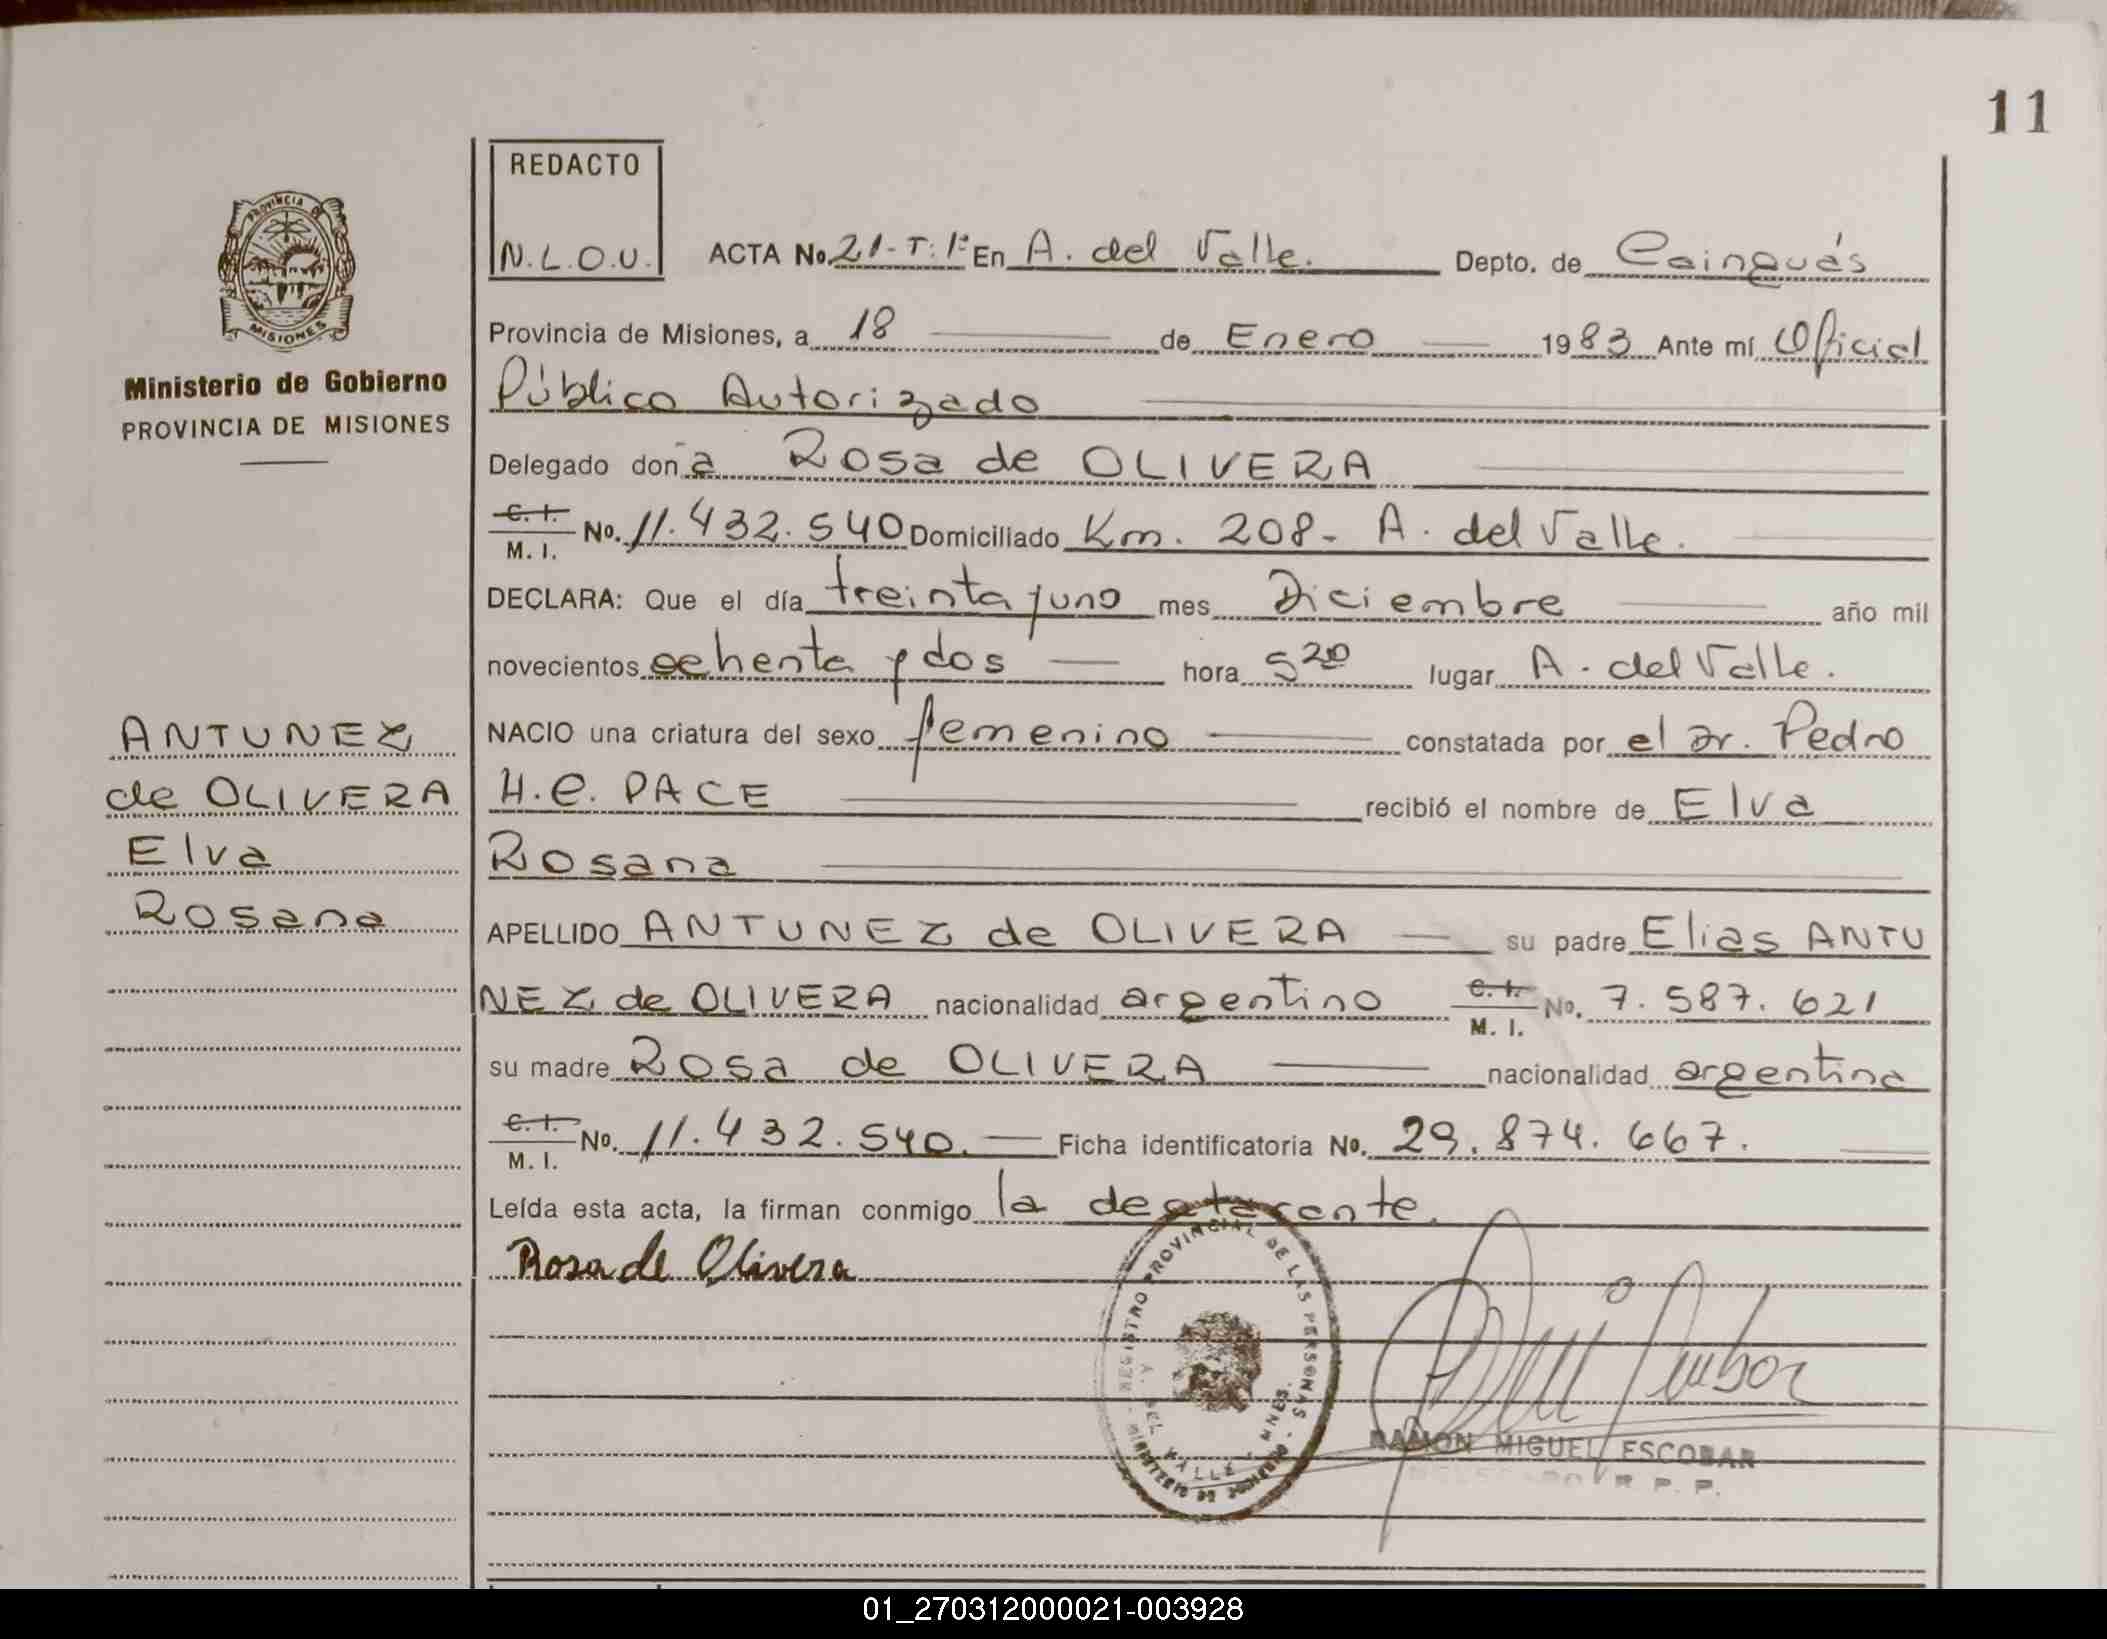 11
REDACTO
N.L.O.U.
PROVINCIA DE
MISIONES
Ministerio de Gobierno
PROVINCIA DE MISIONES
ACTA No. 21-T: 1º En A. del Valle. Depto. de Cainguás
Provincia de Misiones, a 18 de Enero 1983 Ante mí Oficial
Público Autorizado
Delegado doña Rosa de OLIVERA
C. I. M. I. No. 11.432.540 Domiciliado Km. 208- A. del Valle.
DECLARA: Que el día treinta y uno mes Diciembre año mil
novecientos ochenta y dos hora 5 20 lugar A. del Valle.
NACIO una criatura del sexo femenino constatada por el Dr. Pedro
H.C. PACE recibió el nombre de Elva
Rosana
APELLIDO ANTUNEZ de OLIVERA su padre Elias ANTU
NEZ de OLIVERA nacionalidad argentino C. I. M. I. No. 7.587.621
su madre Rosa de OLIVERA nacionalidad argentina
C. I. M. I. No. 11.432.540. Ficha identificatoria No. 29.874.667.
Leída esta acta, la firman conmigo la declarante.
Rosa de Olivera
ANTUNEZ
de OLIVERA
Elva
Rosana
REGISTRO PROVINCIAL DE LAS PERSONAS - MINISTERIO DE GOBIERNO
A. DEL VALLE - MNES.
RAMON MIGUEL ESCOBAR
R. P. P.
01_270312000021-003928